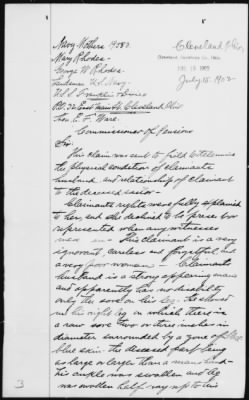 Navy Mothers 9583
Mary Rhodes
George W Rhodes
Landsman U.S. Navy
U.S.S.
Cleveland Ohio
July 15. 1902
P.O. 32 East Cleveland Ohio
Hon. E. F. Ware.
Commissioner of Pensions
Sir:
This claim was sent to field to determine
the physical condition of claimants
husband and relationship of claimant
to the deceased sailor.
Claimants rights were fully explained
to her, and she declined to be present or
represented when any witnesses
This claimant is a very
ignorant, careless and forgetful and
a very poor woman. Claimants
husband is a strong appearing man
and apparently has no disability
only the sore on his leg. He showed
me his right leg on which there is
a raw sore two or three inches in
diameter surrounded by a zone of
blue skin the diseased part being
as large or larger than a mans hand
His ankle was swollen and leg
was swollen half way up to his
3